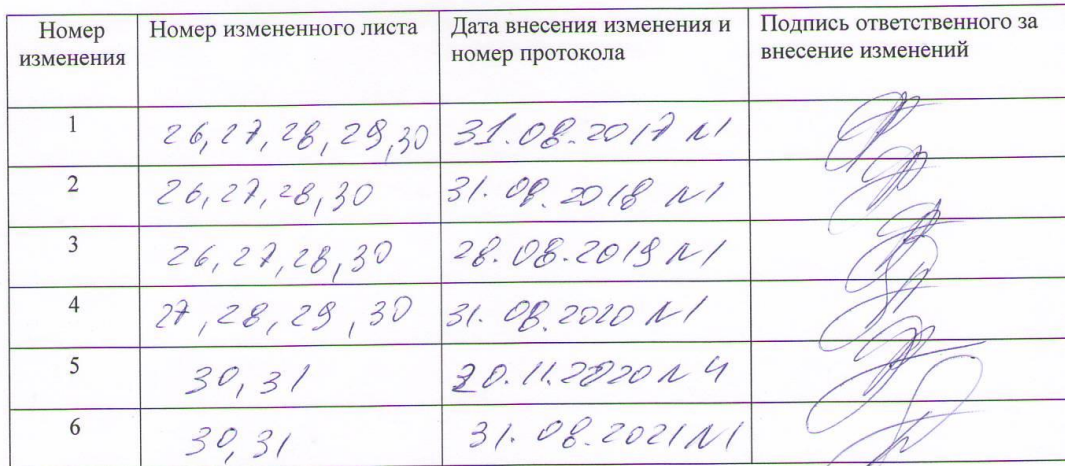 Номер изменения Номер измененного листа Дата внесения изменения и номер протокола Подпись ответственного за внесение изменений
1 26, 27, 28, 29, 30 31.08.2017 №1
2 26, 27, 28, 30 31.08.2018 №1
3 26, 27, 28, 30 28.08.2019 №1
4 27, 28, 29, 30 31.08.2020 №1
5 30, 31 20.11.2020 №4
6 30, 31 31.08.2021 №1